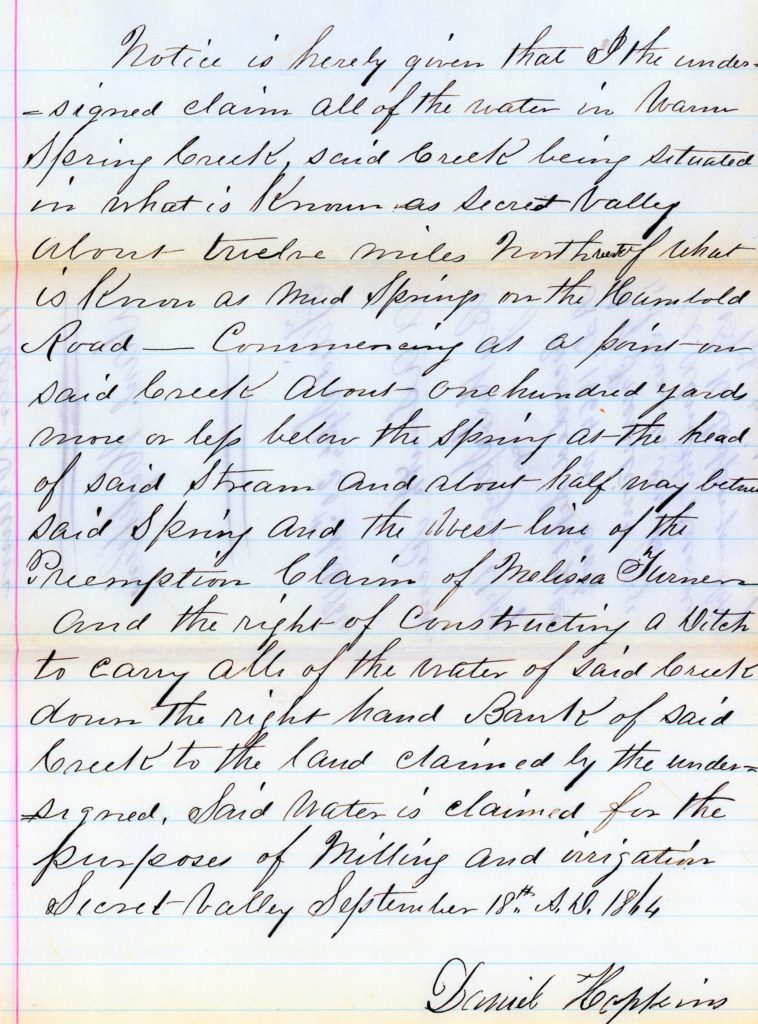 Notice is hereby given that I the under=
=signed claim all of the water in Warm
Spring Creek, said Creek being situated
in what is Known as Secret Valley
about twelve miles Northwest of what
is Known as Mud Springs on the Humbold
Road — Commencing at a point on
said Creek About one hundred yards
more or less below the Spring at the head
of said Stream and about half way betwee
said Spring and the West line of the
Preemption Claim of Melissa Turner
and the right of Constructing a Ditch
to carry all of the water of said Creek
down the right hand Bank of said
Creek to the land claimed by the under=
=signed, Said Water is claimed for the
purposes of Milling and irrigation
Secret Valley September 18th A.D. 1864
Daniel Hopkins